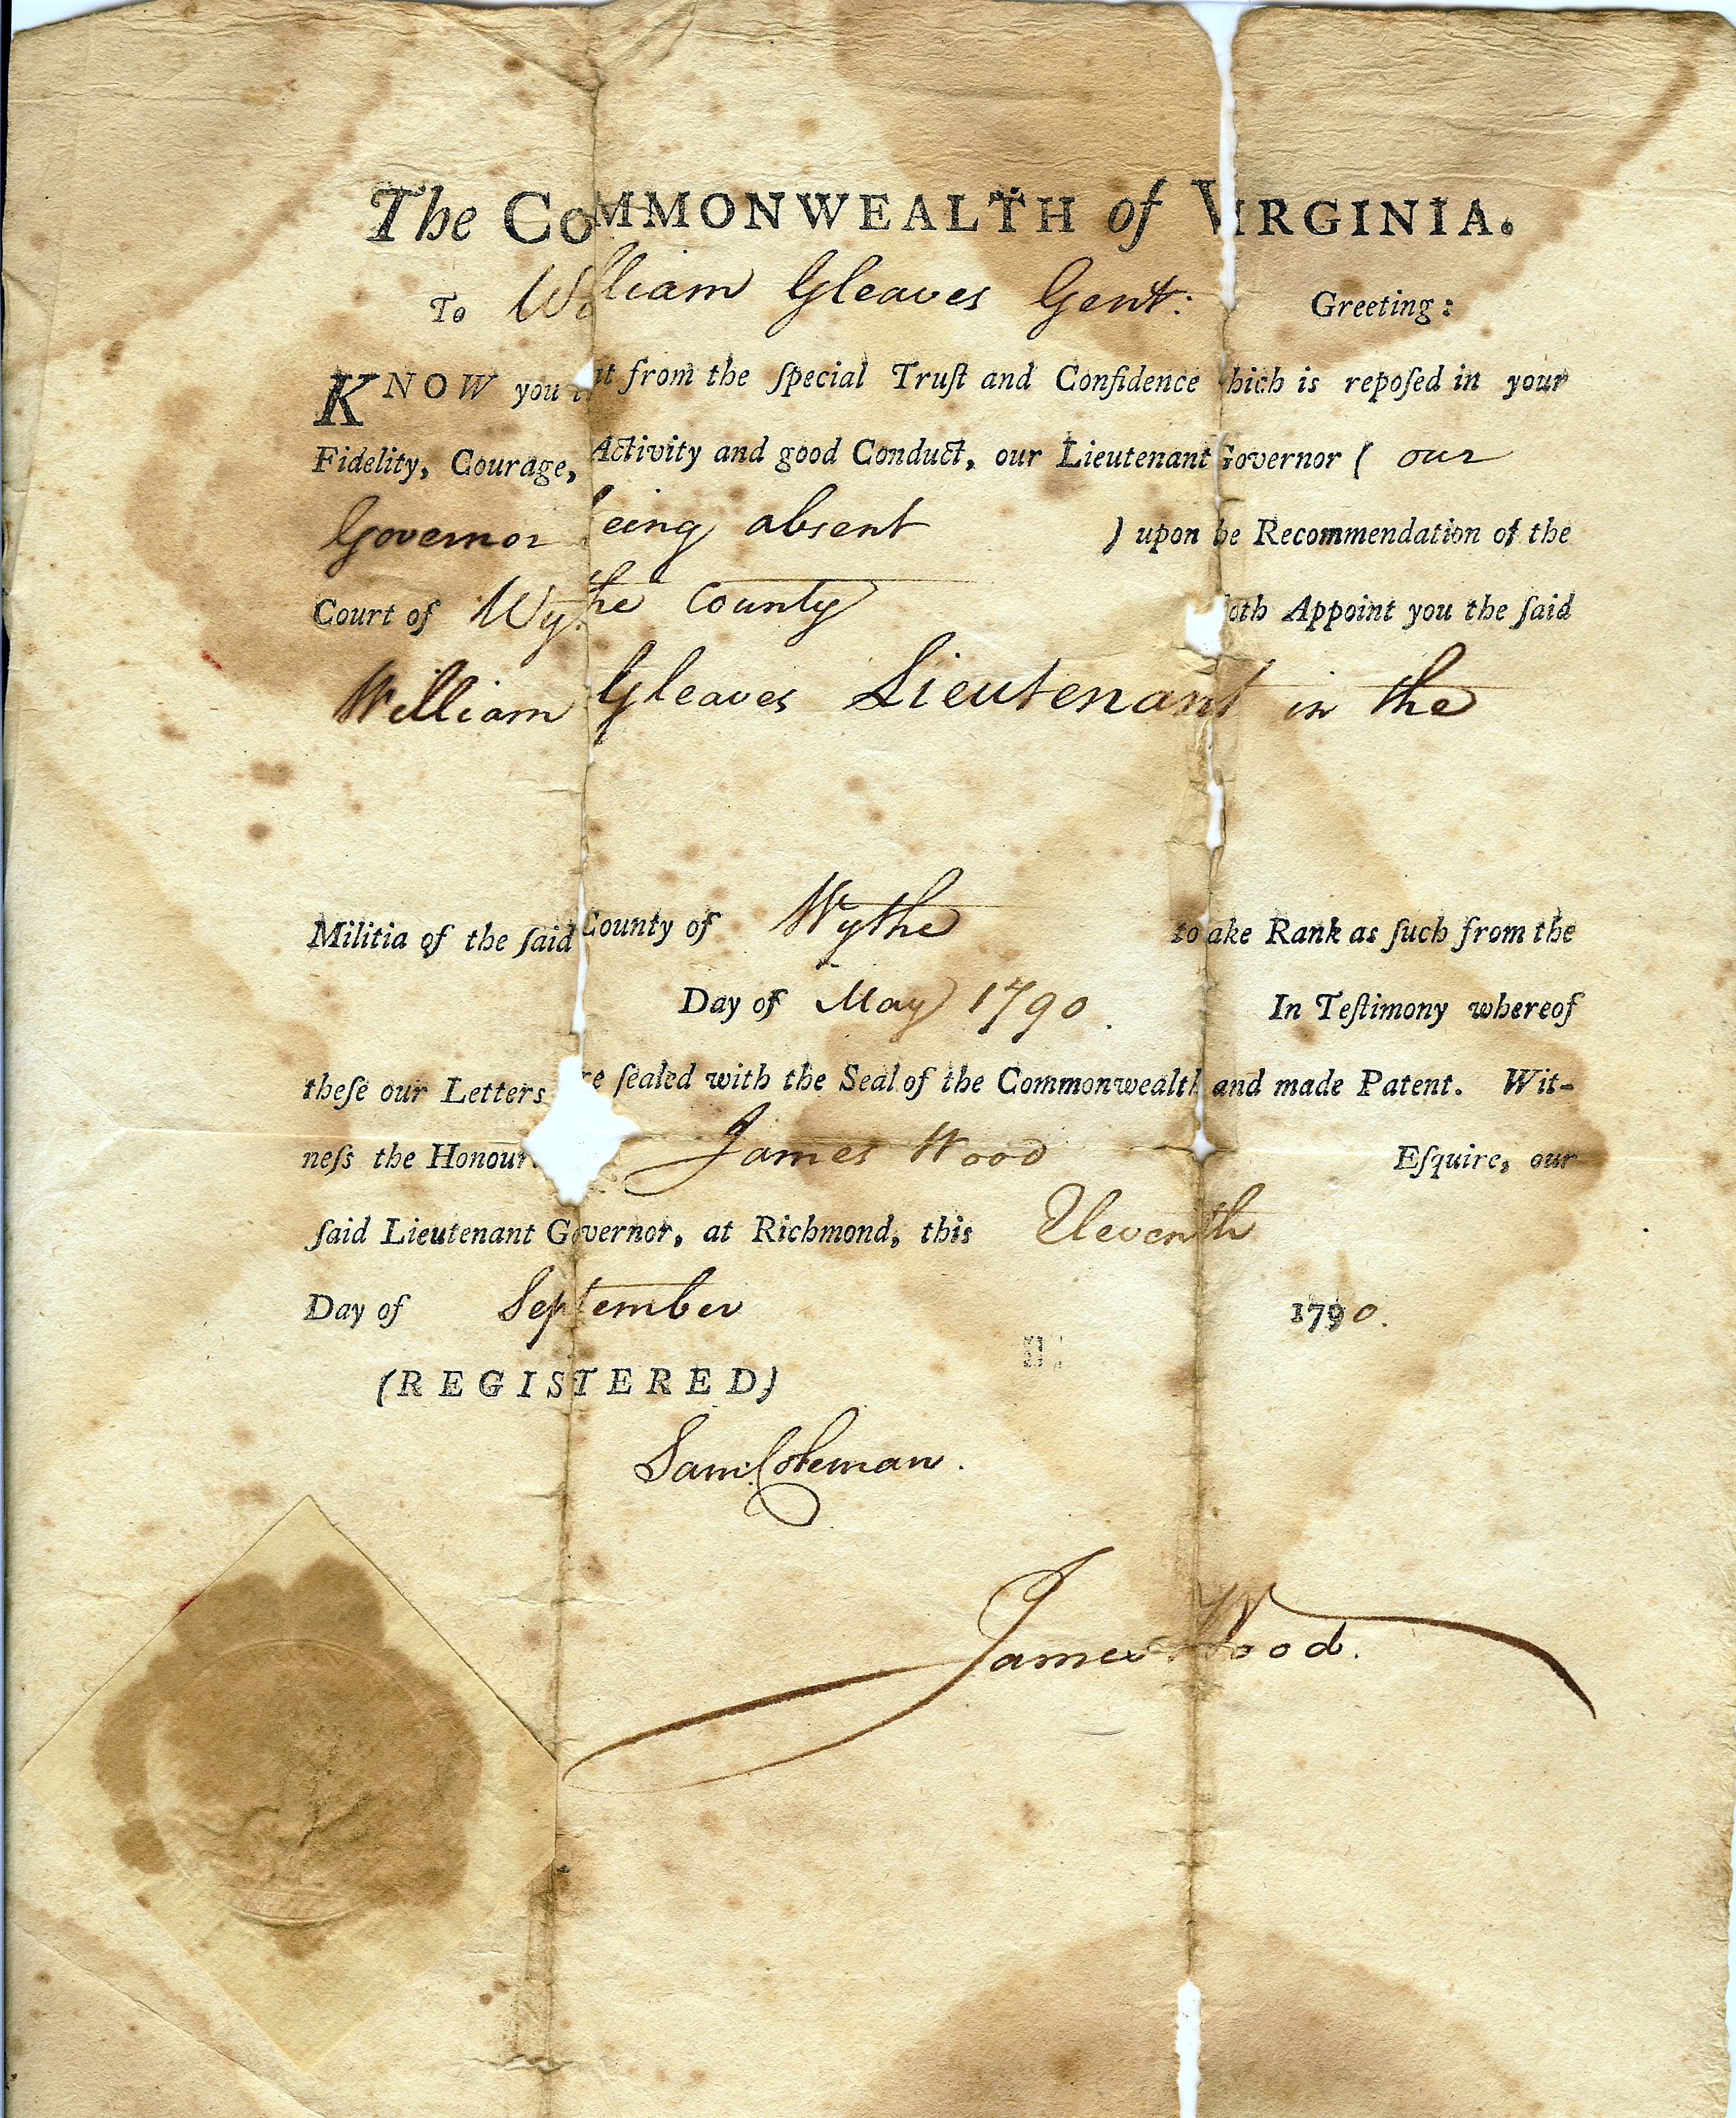 The COMMONWEALTH of VIRGINIA.
To William Gleaves Gent: Greeting:
KNOW you that from the ſpecial Truſt and Confidence which is repoſed in your
Fidelity, Courage, Activity and good Conduct, our Lieutenant Governor ( our
Governor being absent ) upon the Recommendation of the
Court of Wythe County doth Appoint you the ſaid
William Gleaves Lieutenant in the
Militia of the ſaid County of Wythe to take Rank as ſuch from the
Day of May 1790. In Teſtimony whereof
theſe our Letters are ſealed with the Seal of the Commonwealth and made Patent. Wit-
neſs the Honour James Wood Eſquire, our
ſaid Lieutenant Governor, at Richmond, this Eleventh
Day of September 1790.
(REGISTERED)
Sam: Coleman.
James Wood.